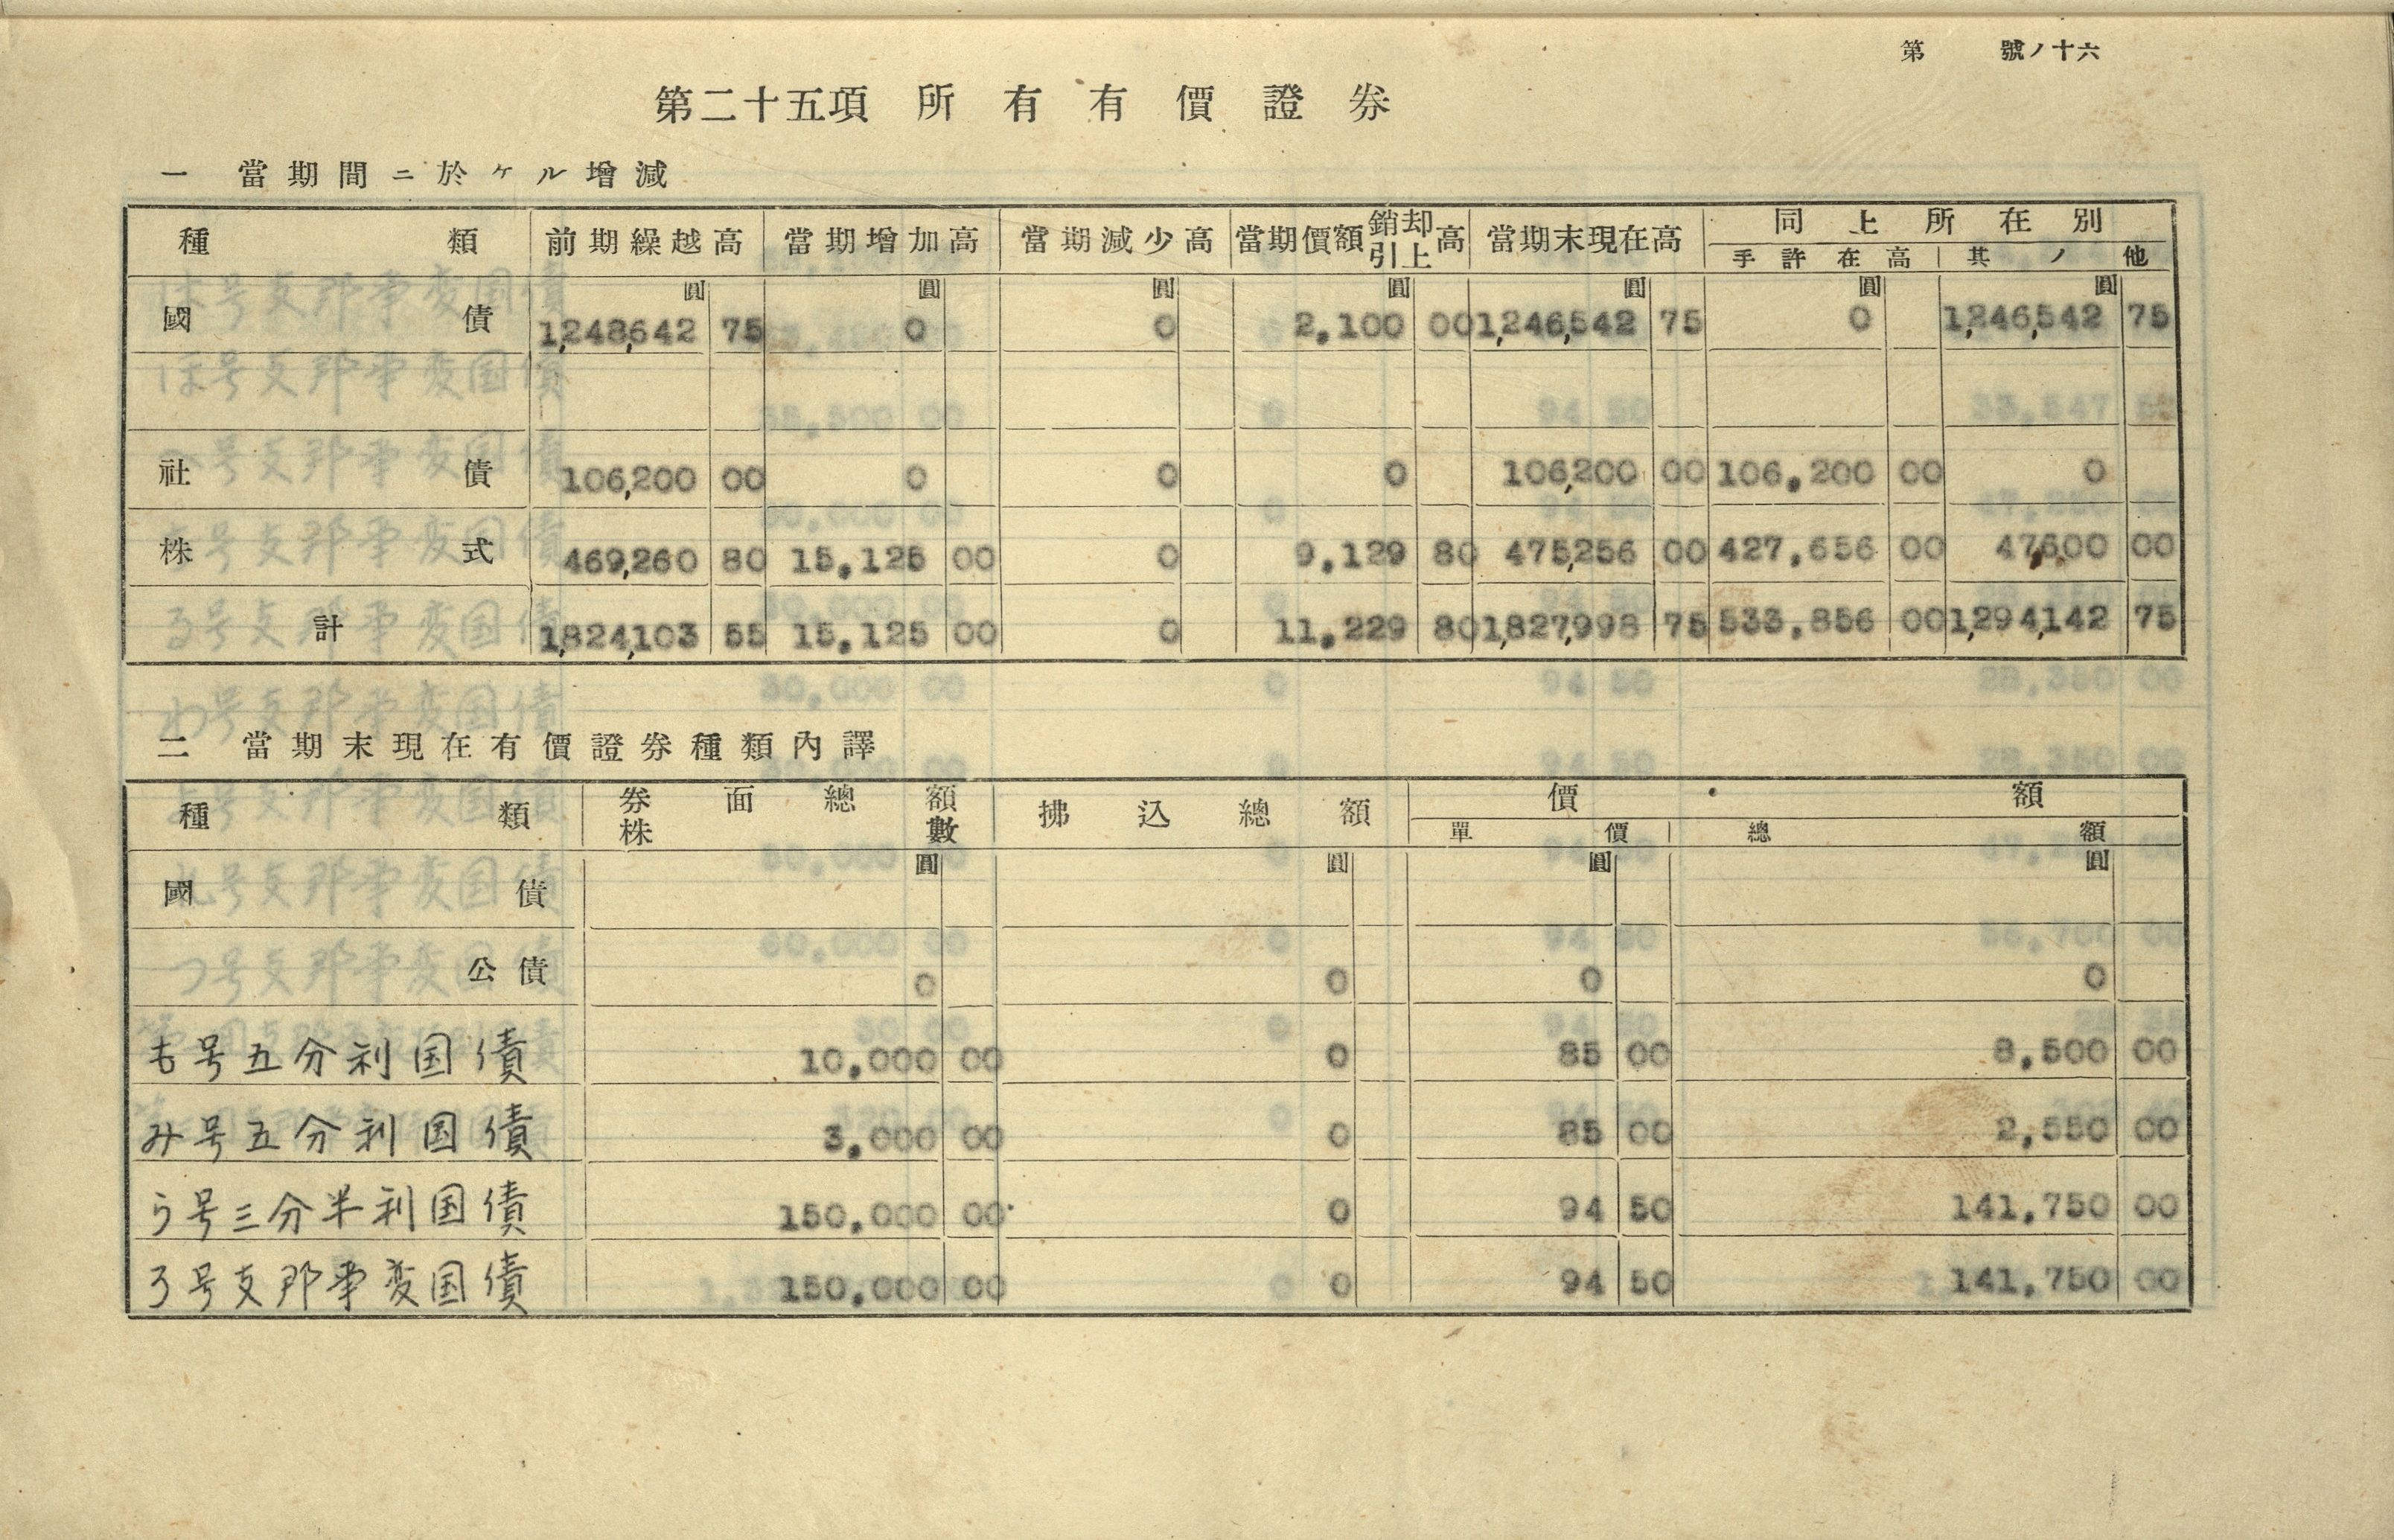 第 號ノ十六
第二十五項 所有有價證券
一 當期間ニ於ケル增減
種類 前期繰越高 當期增加高 當期減少高 當期價額銷却引上高 當期末現在高 同上所在別
手許在高 其ノ他
圓 圓 圓 圓 圓 圓 圓
國債 1,248,642 75 0 0 2,100 00 1,246,542 75 0 1,246,542 75
社債 106,200 00 0 0 0 106,200 00 106,200 00 0
株式 469,260 80 15,125 00 0 9,129 80 475,256 00 427,656 00 47,600 00
計 1,824,103 55 15,125 00 0 11,229 80 1,827,998 75 533,856 00 1,294,142 75
二 當期末現在有價證券種類內譯
種類 券面總額 株數 拂込總額 價額
單價 總額
圓 圓 圓 圓
國債
公債 0 0 0 0
も号五分利国債 10,000 00 0 85 00 8,500 00
み号五分利国債 3,000 00 0 85 00 2,550 00
う号三分半利国債 150,000 00 0 94 50 141,750 00
ろ号支那事変国債 150,000 00 0 94 50 141,750 00